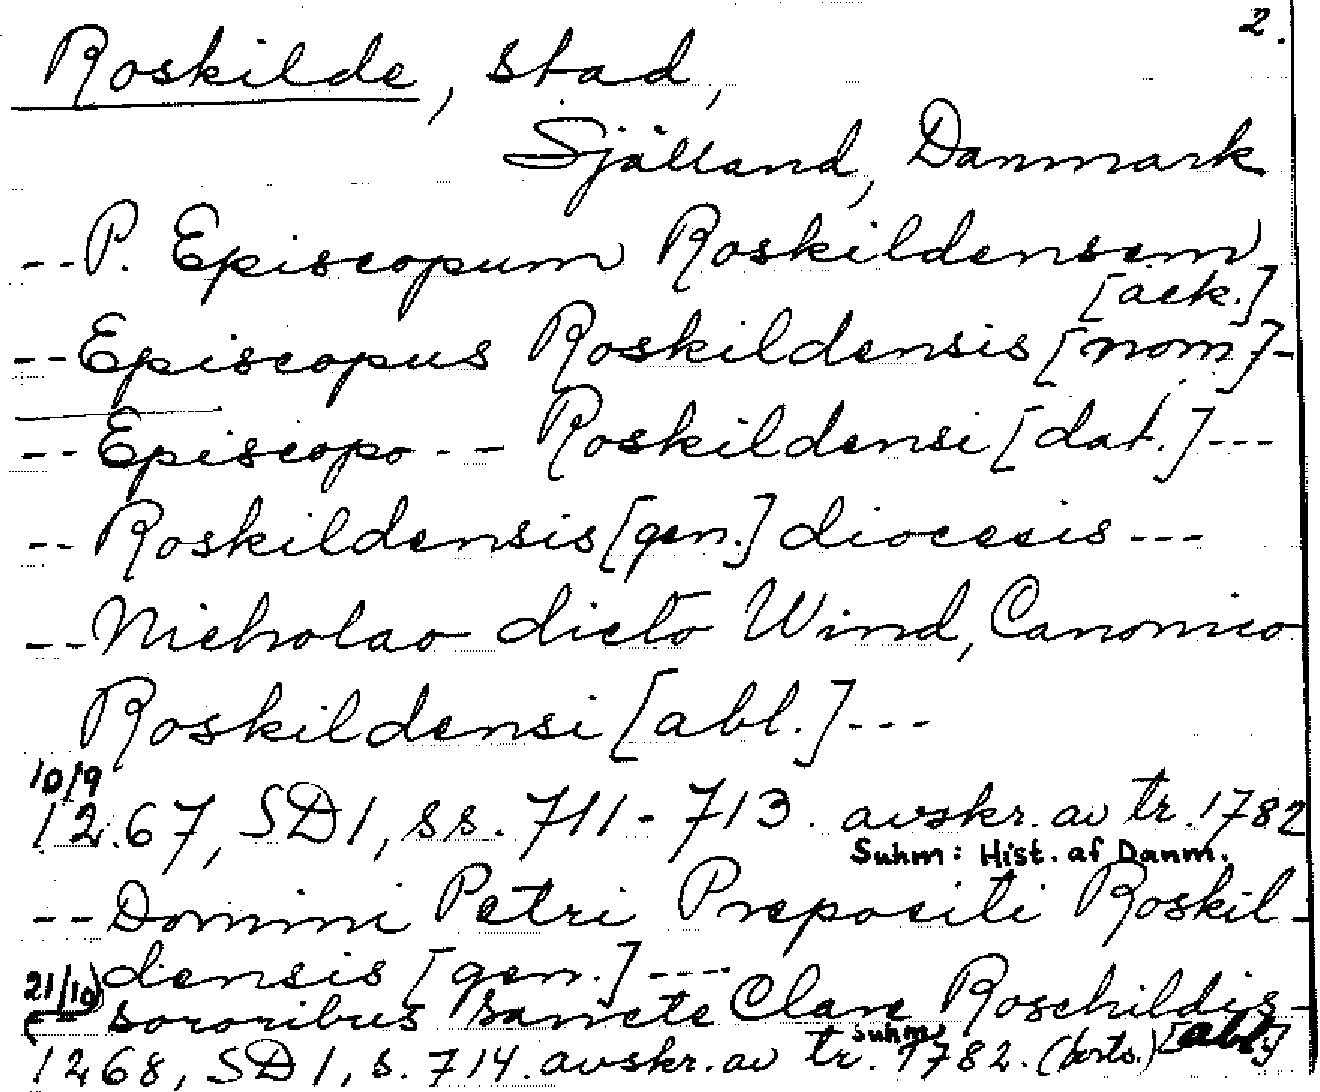 2.
Roskilde, stad,
Själland, Danmark
--P. Episcopum Roskildensem
[ack.]
--Episcopus Roskildensis [nom]-
--Episcopo -- Roskildensi [dat.]---
--Roskildensis [gen.] diocesis---
--Nicholao dicto Wind, Canonico
Roskildensi [abl.]---
10/9
1267, SD1, ss. 711-713. avskr. av tr. 1782
Suhm: Hist. af Danm.
--Domini Petri Prepositi Roskil-
densis [gen.]----
21/10
sororibus Sancte Clare Roschildis-
[abl.]
1268, SD1, s. 714. avskr. av tr. Suhm 1782. (forts.)